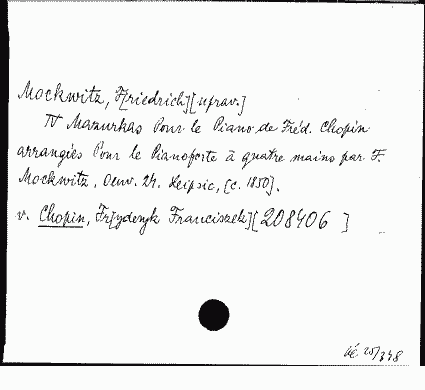 Mockwitz, F[riedrich] [uprav.]
IV Mazurkas Pour le Piano de Fréd. Chopin
arrangées Pour le Pianoforte à quatre mains par F.
Mockwitz, Oeuv. 24. Leipsic, [c. 1850].
v. Chopin, Fr[yderyk Franciszek] [208406 ]
25/348